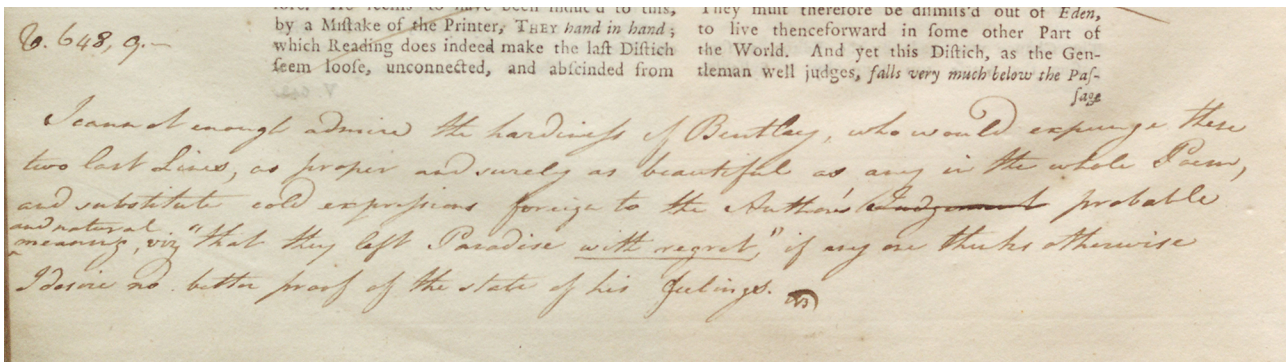 fore. He seems to have been induc'd to this,
by a Mistake of the Printer, THEY hand in hand;
which Reading does indeed make the last Distich
seem loose, unconnected, and abscinded from
They must therefore be dismiss'd out of Eden,
to live thenceforward in some other Part of
the World. And yet this Distich, as the Gen-
tleman well judges, falls very much below the Pas-
sage
V. 648, 9.—
I cannot enough admire the hardiness of Bentley, who would expunge these
two last Lines, as proper and surely as beautiful as any in the whole Poem,
and substitute cold expressions foreign to the Author's Judgement probable
and natural
meaning, viz "that they left Paradise with regret," if any one thinks otherwise
I desire no better proof of the state of his feelings.